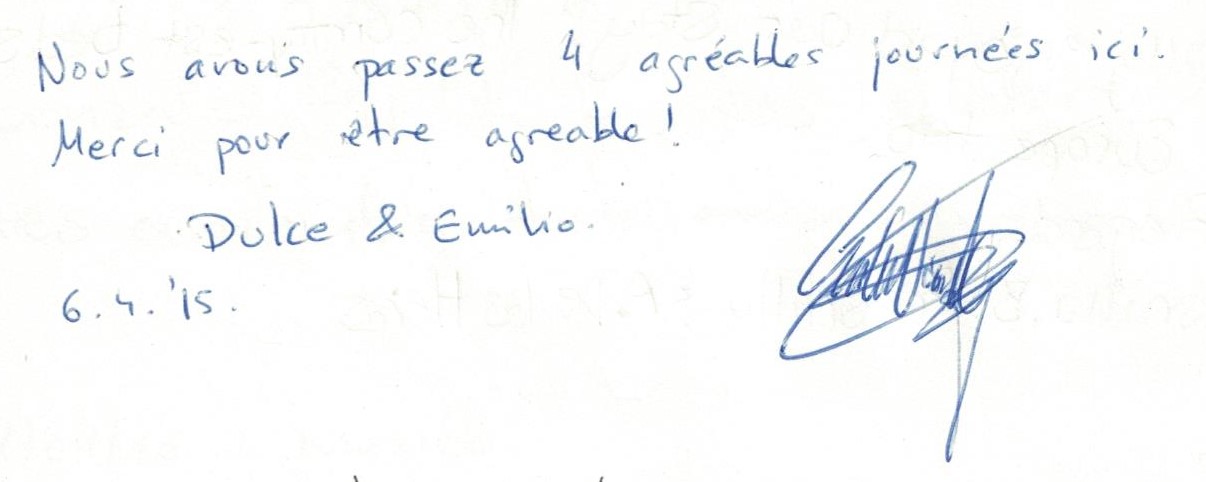 Nous avons passez 4 agréables journées ici.
Merci pour être agreable!
Dulce & Emilio.
6.4.'15.